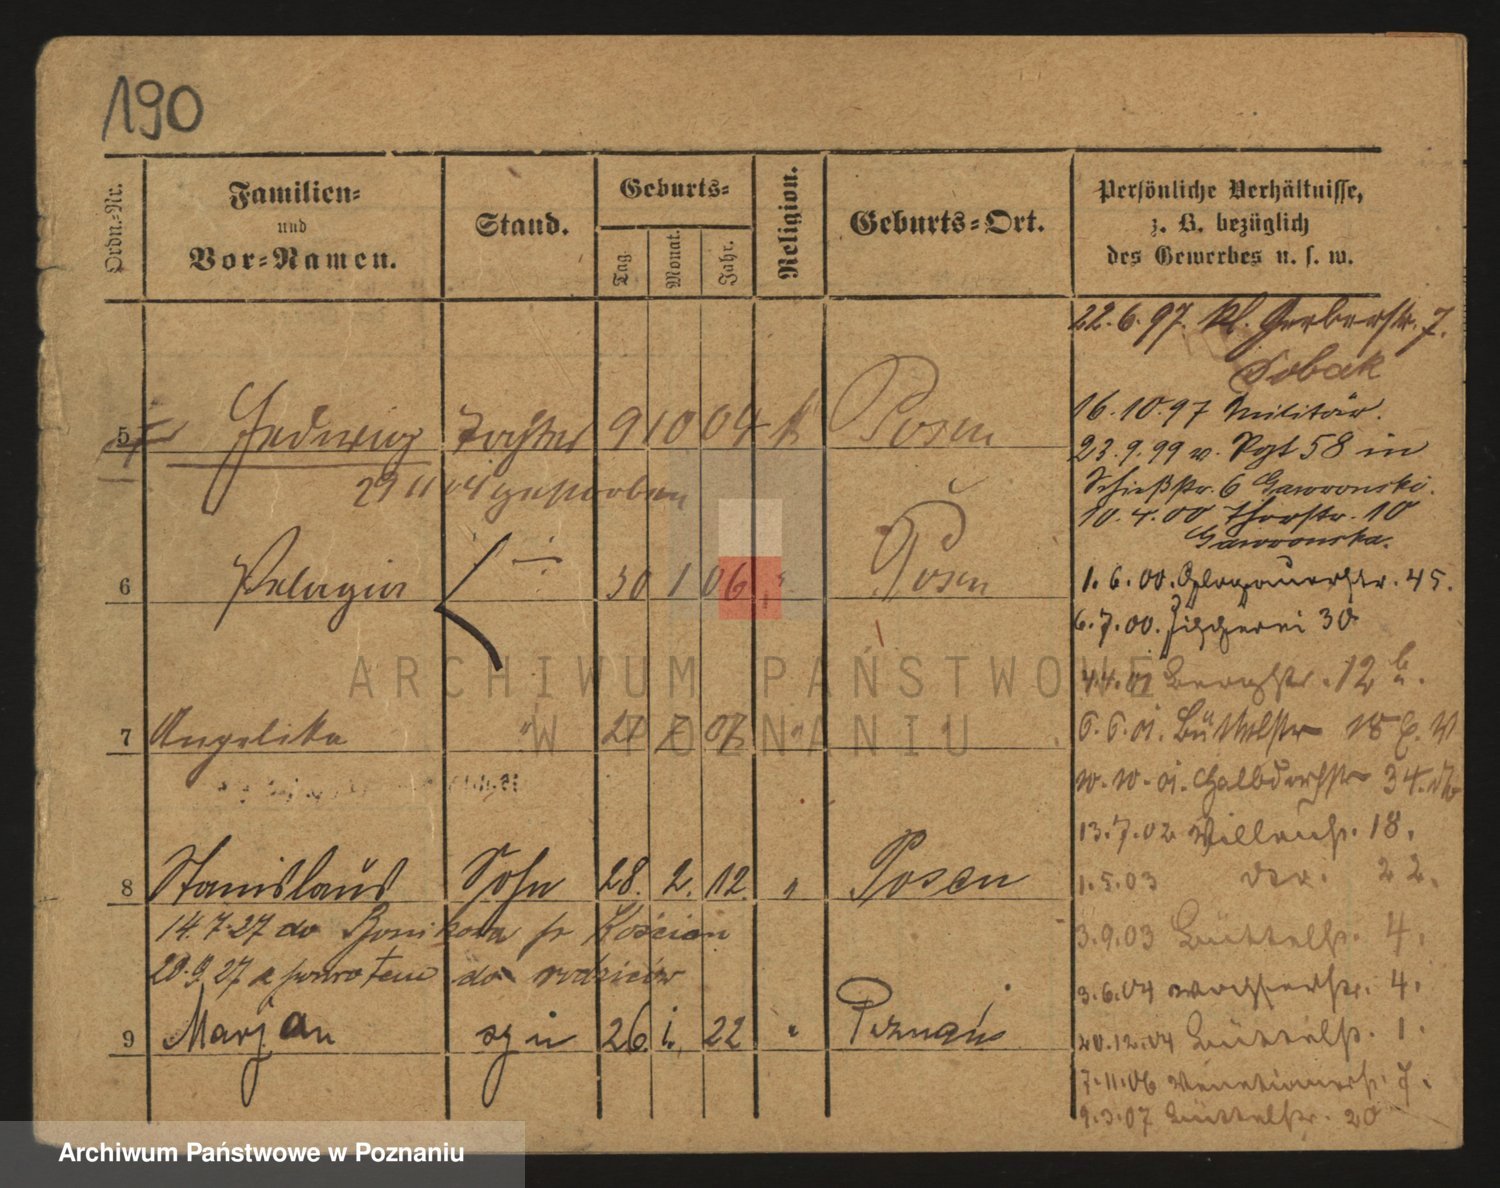 190
Ordn.-Nr.
Familien-
und
Vor-Namen.
Stand.
Geburts-
Tag.
Monat.
Jahr.
Religion.
Geburts-Ort.
Persönliche Verhältnisse,
z. B. bezüglich
des Gewerbes u. s. w.
5 Hedwig Tochter 9 10 04 k Posen
29 11 04 gestorben
6 Pelagia 30 1 06 " Posen
7 Angelika " 21 7 07 " "
8 Stanislaus Sohn 28. 2. 12. " Posen
14.7.27 do Bonikowa p. Kościan
20.9.27 z powrotem do rodziców
9 Marjan syn 26 1. 22 " Poznań
22.6.97. Kl. Gerberstr. 7.
Sobak
16.10.97 Militär.
23.9.99 v. Rgt 58 in
Schießstr. 6 Gawronski.
10.4.00 Thorstr. 10
Gawronska.
1.6.00. Glogauerstr. 45.
6.7.00. 30
4.4.01 Bergstr. 12 b.
6.6.01. Büttelstr 18
10.10.01. Halbdorfstr 34.
13.7.02 18.
1.5.03 der. 22.
3.9.03 Büttelstr. 4.
3.6.04 Wasserstr. 4.
20.12.04 Büttelstr. 1.
7.11.06 Venetianerstr. 7.
9.3.07 Büttelstr. 20
ARCHIWUM PAŃSTWOWE
W POZNANIU
Archiwum Państwowe w Poznaniu